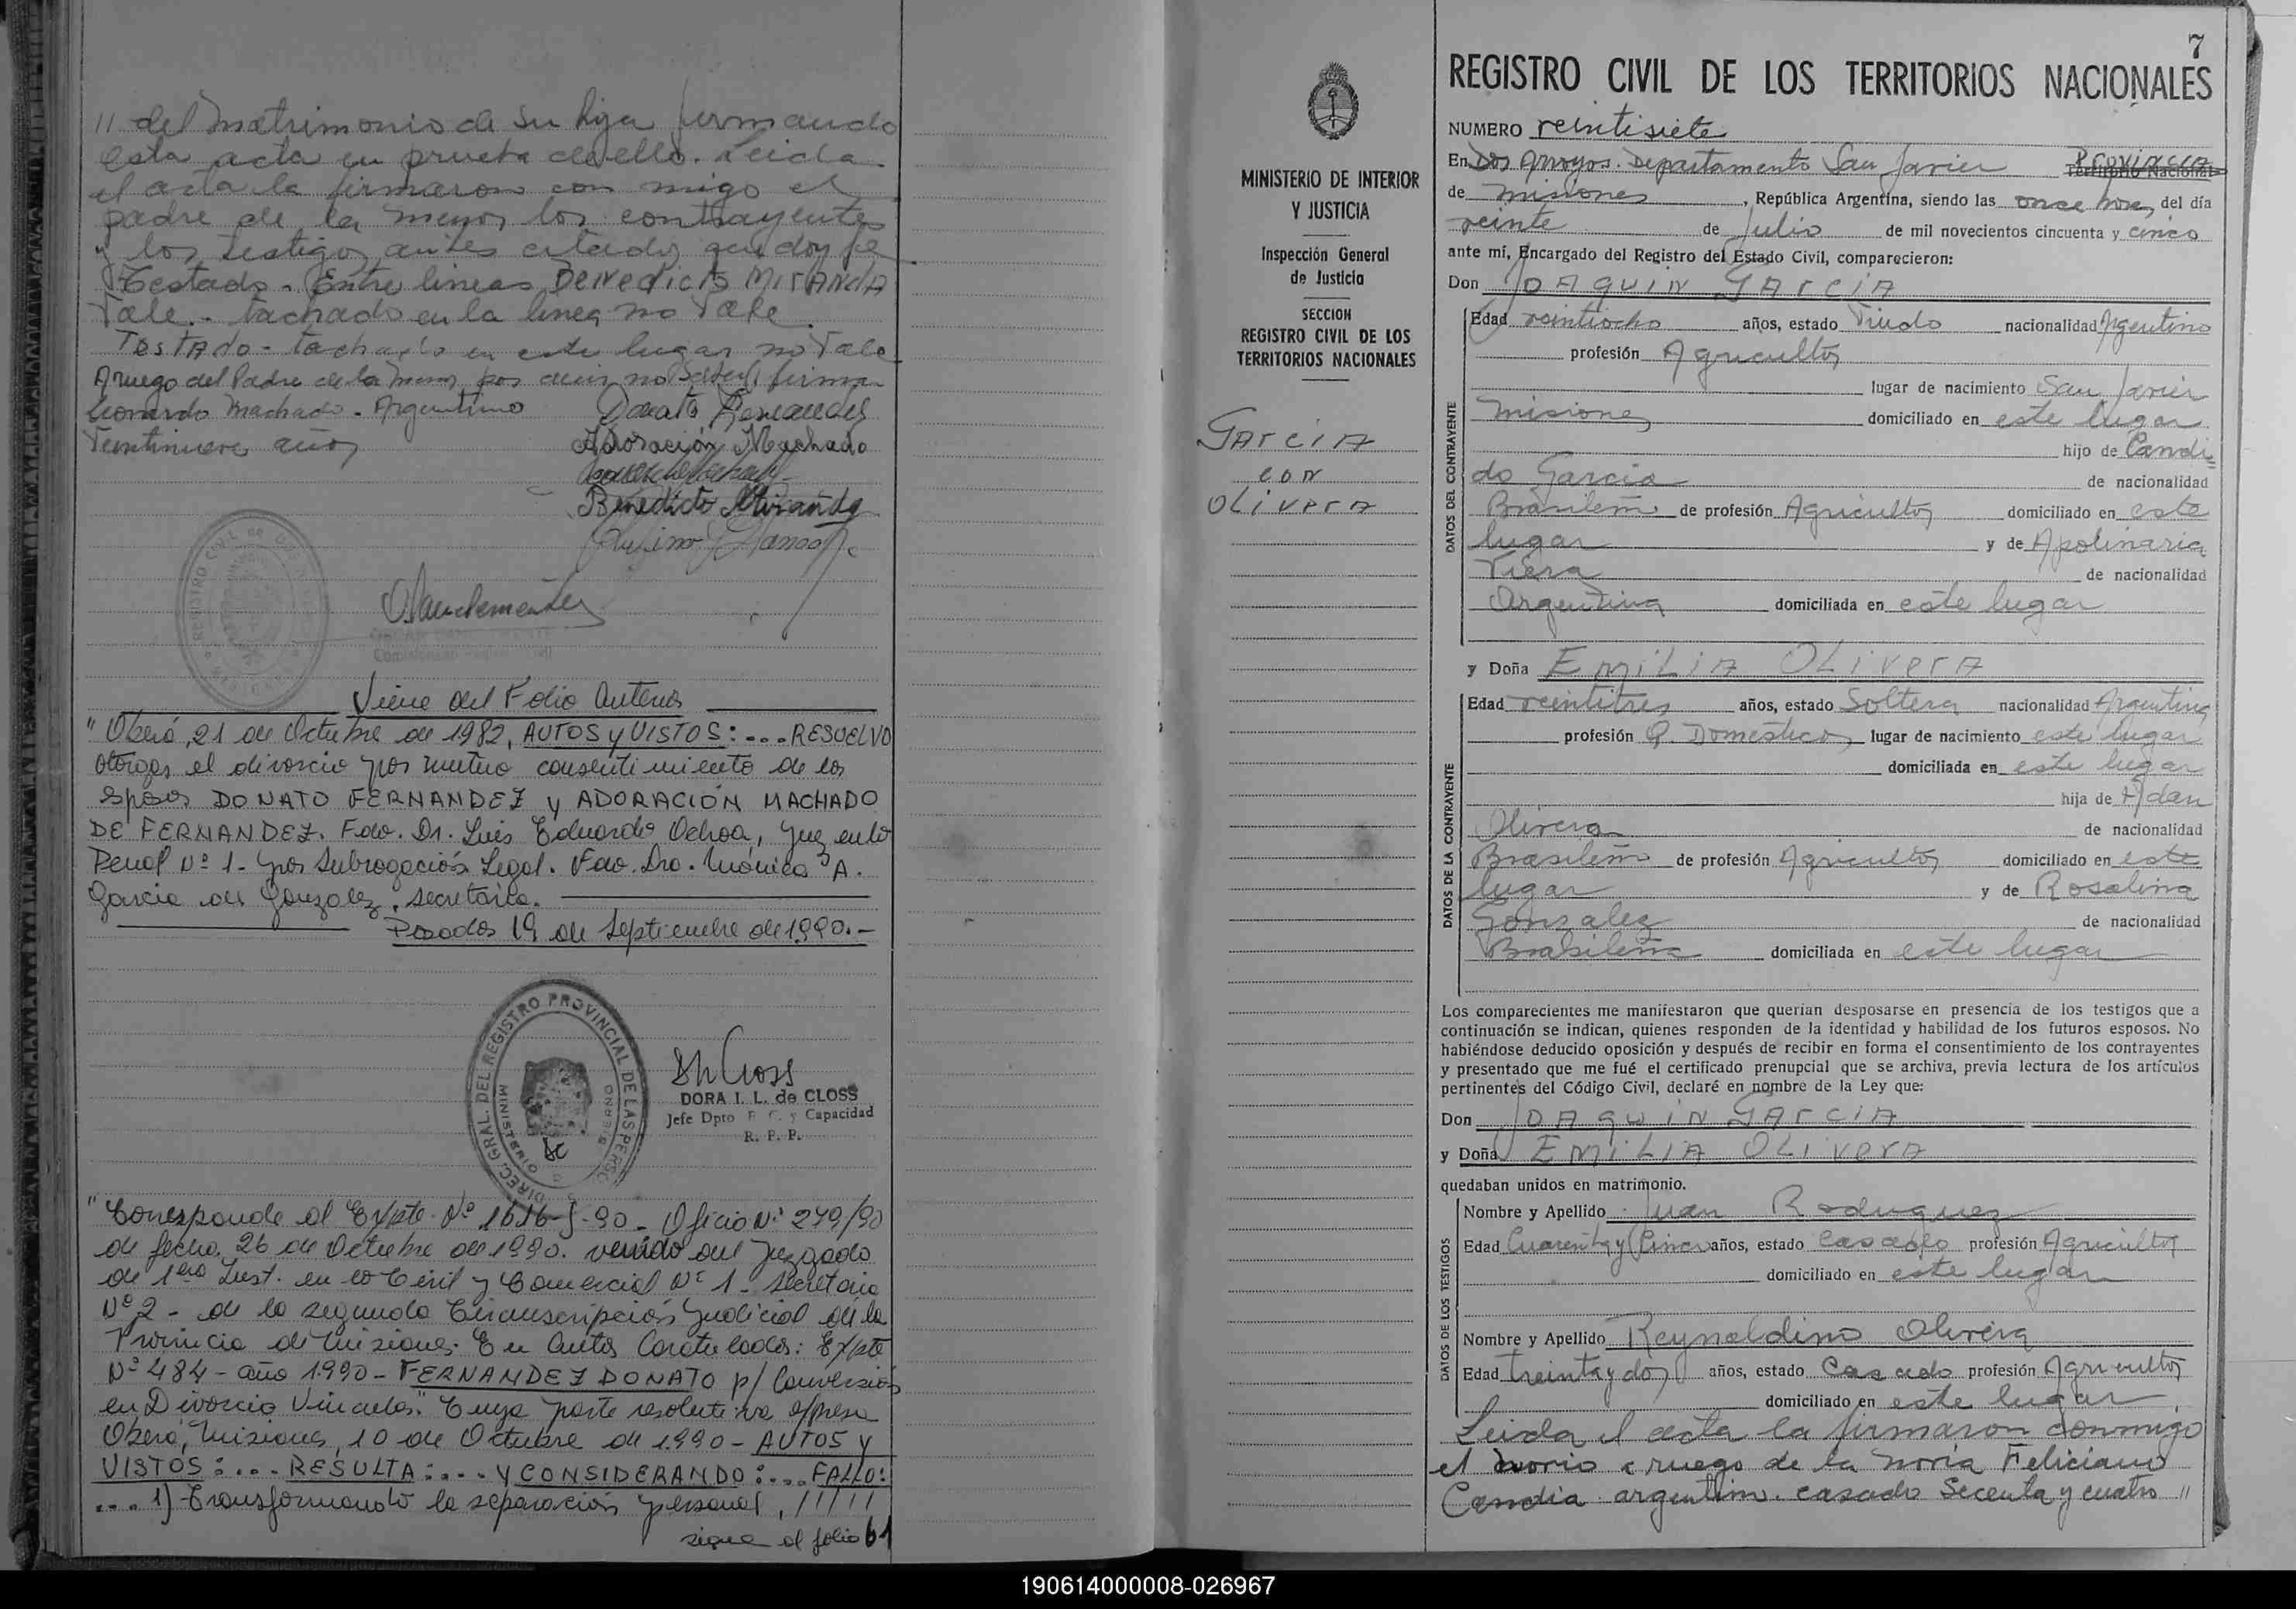 // del Matrimonio de su hija firmando
esta acta en prueba de ello. Leida
el acta la firmaron con migo el
padre de la menor los contrayentes
y los testigos antes citados que doy fe
Testado - Entre lineas Benedicto Miranda
vale - tachado en la linea no vale
Testado - tachado en este lugar no vale
A ruego del Padre de la menor por decir no saber firmar
Leonardo Machado - Argentino
Veintinueve años
Donato Fernandez
Adoración Machado
Benedicto Miranda
Viene del Folio Anterior
"Oberá, 21 de Octubre de 1982, AUTOS y VISTOS: ... RESUELVO
otorgar el divorcio por mutuo consentimiento de los
esposos DONATO FERNANDEZ y ADORACIÓN MACHADO
DE FERNANDEZ. Fdo. Dr. Luis Eduardo Ochoa, Juez en lo
Penal Nº 1 - por Subrogación Legal. Fdo. Dra. Mónica A.
Garcia de Gonzalez, secretaria.
Posadas 19 de Septiembre de 1990.-
DIREC. GRAL. DEL REGISTRO PROVINCIAL DE LAS PERS
MINISTERIO
DORA I. L. de CLOSS
Jefe Dpto E. C. y Capacidad
R. P. P.
"Corresponde al Expte. Nº 1616-J-90 - Oficio Nº 279/90
de fecha 26 de Octubre de 1990. venido del Juzgado
de 1era Inst. en lo Civil y Comercial Nº 1 - Secretaria
Nº 2 - de la segunda Circunscripción Judicial de la
Provincia de Misiones. En Autos Caratulados: Expte
Nº 484 - año 1990 - FERNANDEZ DONATO p/ Conversión
en Divorcio Vincular." Cuya parte resolutiva expresa
Oberá, Misiones, 10 de Octubre de 1990 - AUTOS y
VISTOS: ... RESULTA: ... Y CONSIDERANDO: ... FALLO:
... 1) Transformando la separación personal, //////
sigue al folio 61
MINISTERIO DE INTERIOR
Y JUSTICIA
Inspección General
de Justicia
SECCION
REGISTRO CIVIL DE LOS
TERRITORIOS NACIONALES
Garcia
con
Olivera
7
REGISTRO CIVIL DE LOS TERRITORIOS NACIONALES
NUMERO veintisiete
En Dos Arroyos. Departamento San Javier Provincia Territorio Nacional
de Misiones, República Argentina, siendo las once horas, del día
veinte de Julio de mil novecientos cincuenta y cinco
ante mí, Encargado del Registro del Estado Civil, comparecieron:
Don Joaquin Garcia
Edad veintiocho años, estado Viudo nacionalidad Argentino
profesión Agricultor
lugar de nacimiento San Javier
Misiones domiciliado en este lugar
hijo de Candi=
do Garcia de nacionalidad
Brasileño de profesión Agricultor domiciliado en este
lugar y de Apolinaria
Viera de nacionalidad
Argentina domiciliada en este lugar
DATOS DEL CONTRAYENTE
y Doña Emilia Olivera
Edad veintitres años, estado Soltera nacionalidad Argentina
profesión Q. Domesticos lugar de nacimiento este lugar
domiciliada en este lugar
hija de Adan
Olivera de nacionalidad
Brasileño de profesión Agricultor domiciliado en este
lugar y de Rosalina
Gonzalez de nacionalidad
Brasileña domiciliada en este lugar
DATOS DE LA CONTRAYENTE
Los comparecientes me manifestaron que querían desposarse en presencia de los testigos que a
continuación se indican, quienes responden de la identidad y habilidad de los futuros esposos. No
habiéndose deducido oposición y después de recibir en forma el consentimiento de los contrayentes
y presentado que me fué el certificado prenupcial que se archiva, previa lectura de los artículos
pertinentes del Código Civil, declaré en nombre de la Ley que:
Don Joaquin Garcia
y Doña Emilia Olivera
quedaban unidos en matrimonio.
Nombre y Apellido Juan Rodriguez
Edad Cuarenta y Cinco años, estado Casado profesión Agricultor
domiciliado en este lugar
DATOS DE LOS TESTIGOS
Nombre y Apellido Reynaldino Olivera
Edad treinta y dos años, estado Casado profesión Agricultor
domiciliado en este lugar
Leida el acta la firmaron conmigo
el novio a ruego de la novia Feliciano
Candia argentino casado Secenta y cuatro //
190614000008-026967